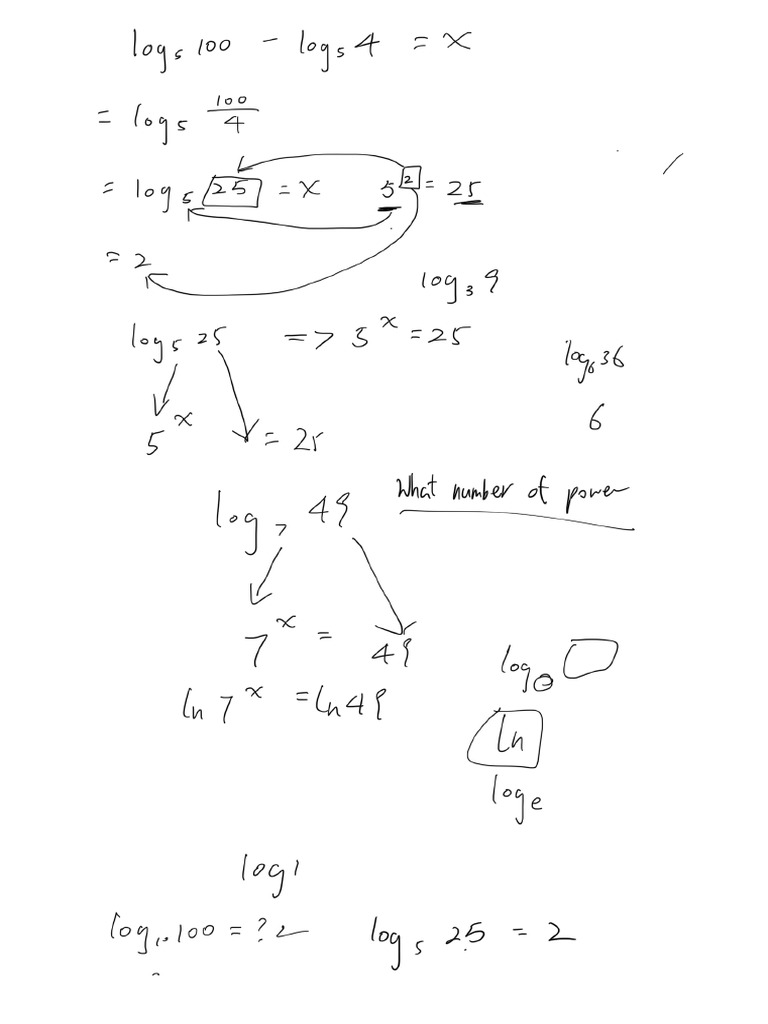 log₅ 100 - log₅ 4 = x
= log₅ 100/4
= log₅ 25 = x 5² = 25
= 2
log₃ 9
log₅ 25 => 5ˣ = 25
log₆ 36
5ˣ = 25
6
What number of power
log₇ 49
7ˣ = 49
log
ln 7ˣ = ln 49
ln
log e
log 1
log₁₀ 100 = ? 2 log₅ 25 = 2